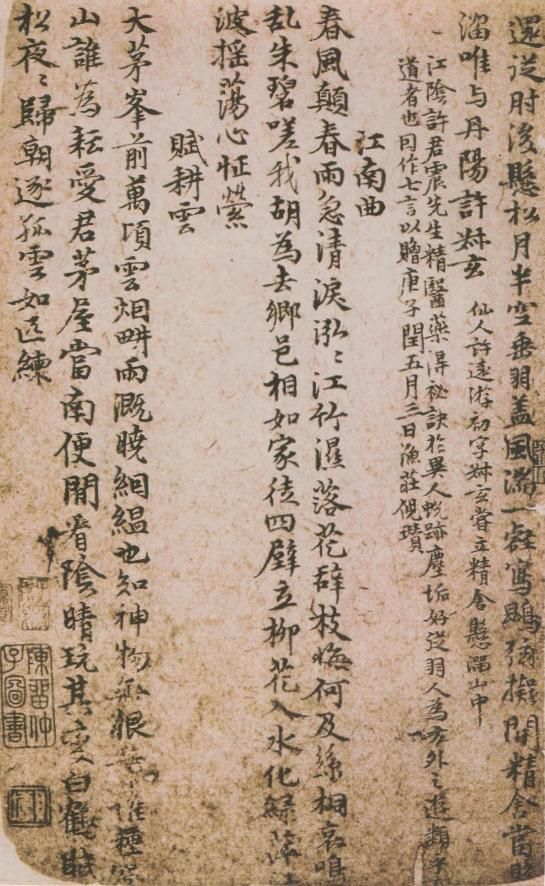 還從肘後懸松月半空垂羽蓋風湍一壑寫鵾弦擬開精舍當
溜唯与丹陽許䊵玄
仙人許遠游初字䊵玄嘗立精舍懸溜山中
江陰許君震先生精醫藥得祕訣於異人蛻跡塵垢好從羽人為方外之遊類
道者也因作七言以贈庚子閏五月三日漁莊倪瓚
江南曲
春風顛春雨急清淚泓〻江竹濕落花辞枝悔何及絲桐哀鳴
乱朱碧嗟我胡為去鄉邑相如家徒四壁立柳花入水化緑萍
波搖蕩心怔營
賦耕雲
大茅峯前萬頃雲烟畊雨溉曉絪緼也知神物無根
山誰為耘愛君茅屋當南便閒看陰晴玩其變白鶴
松夜〻歸朝逐孤雲如疋練